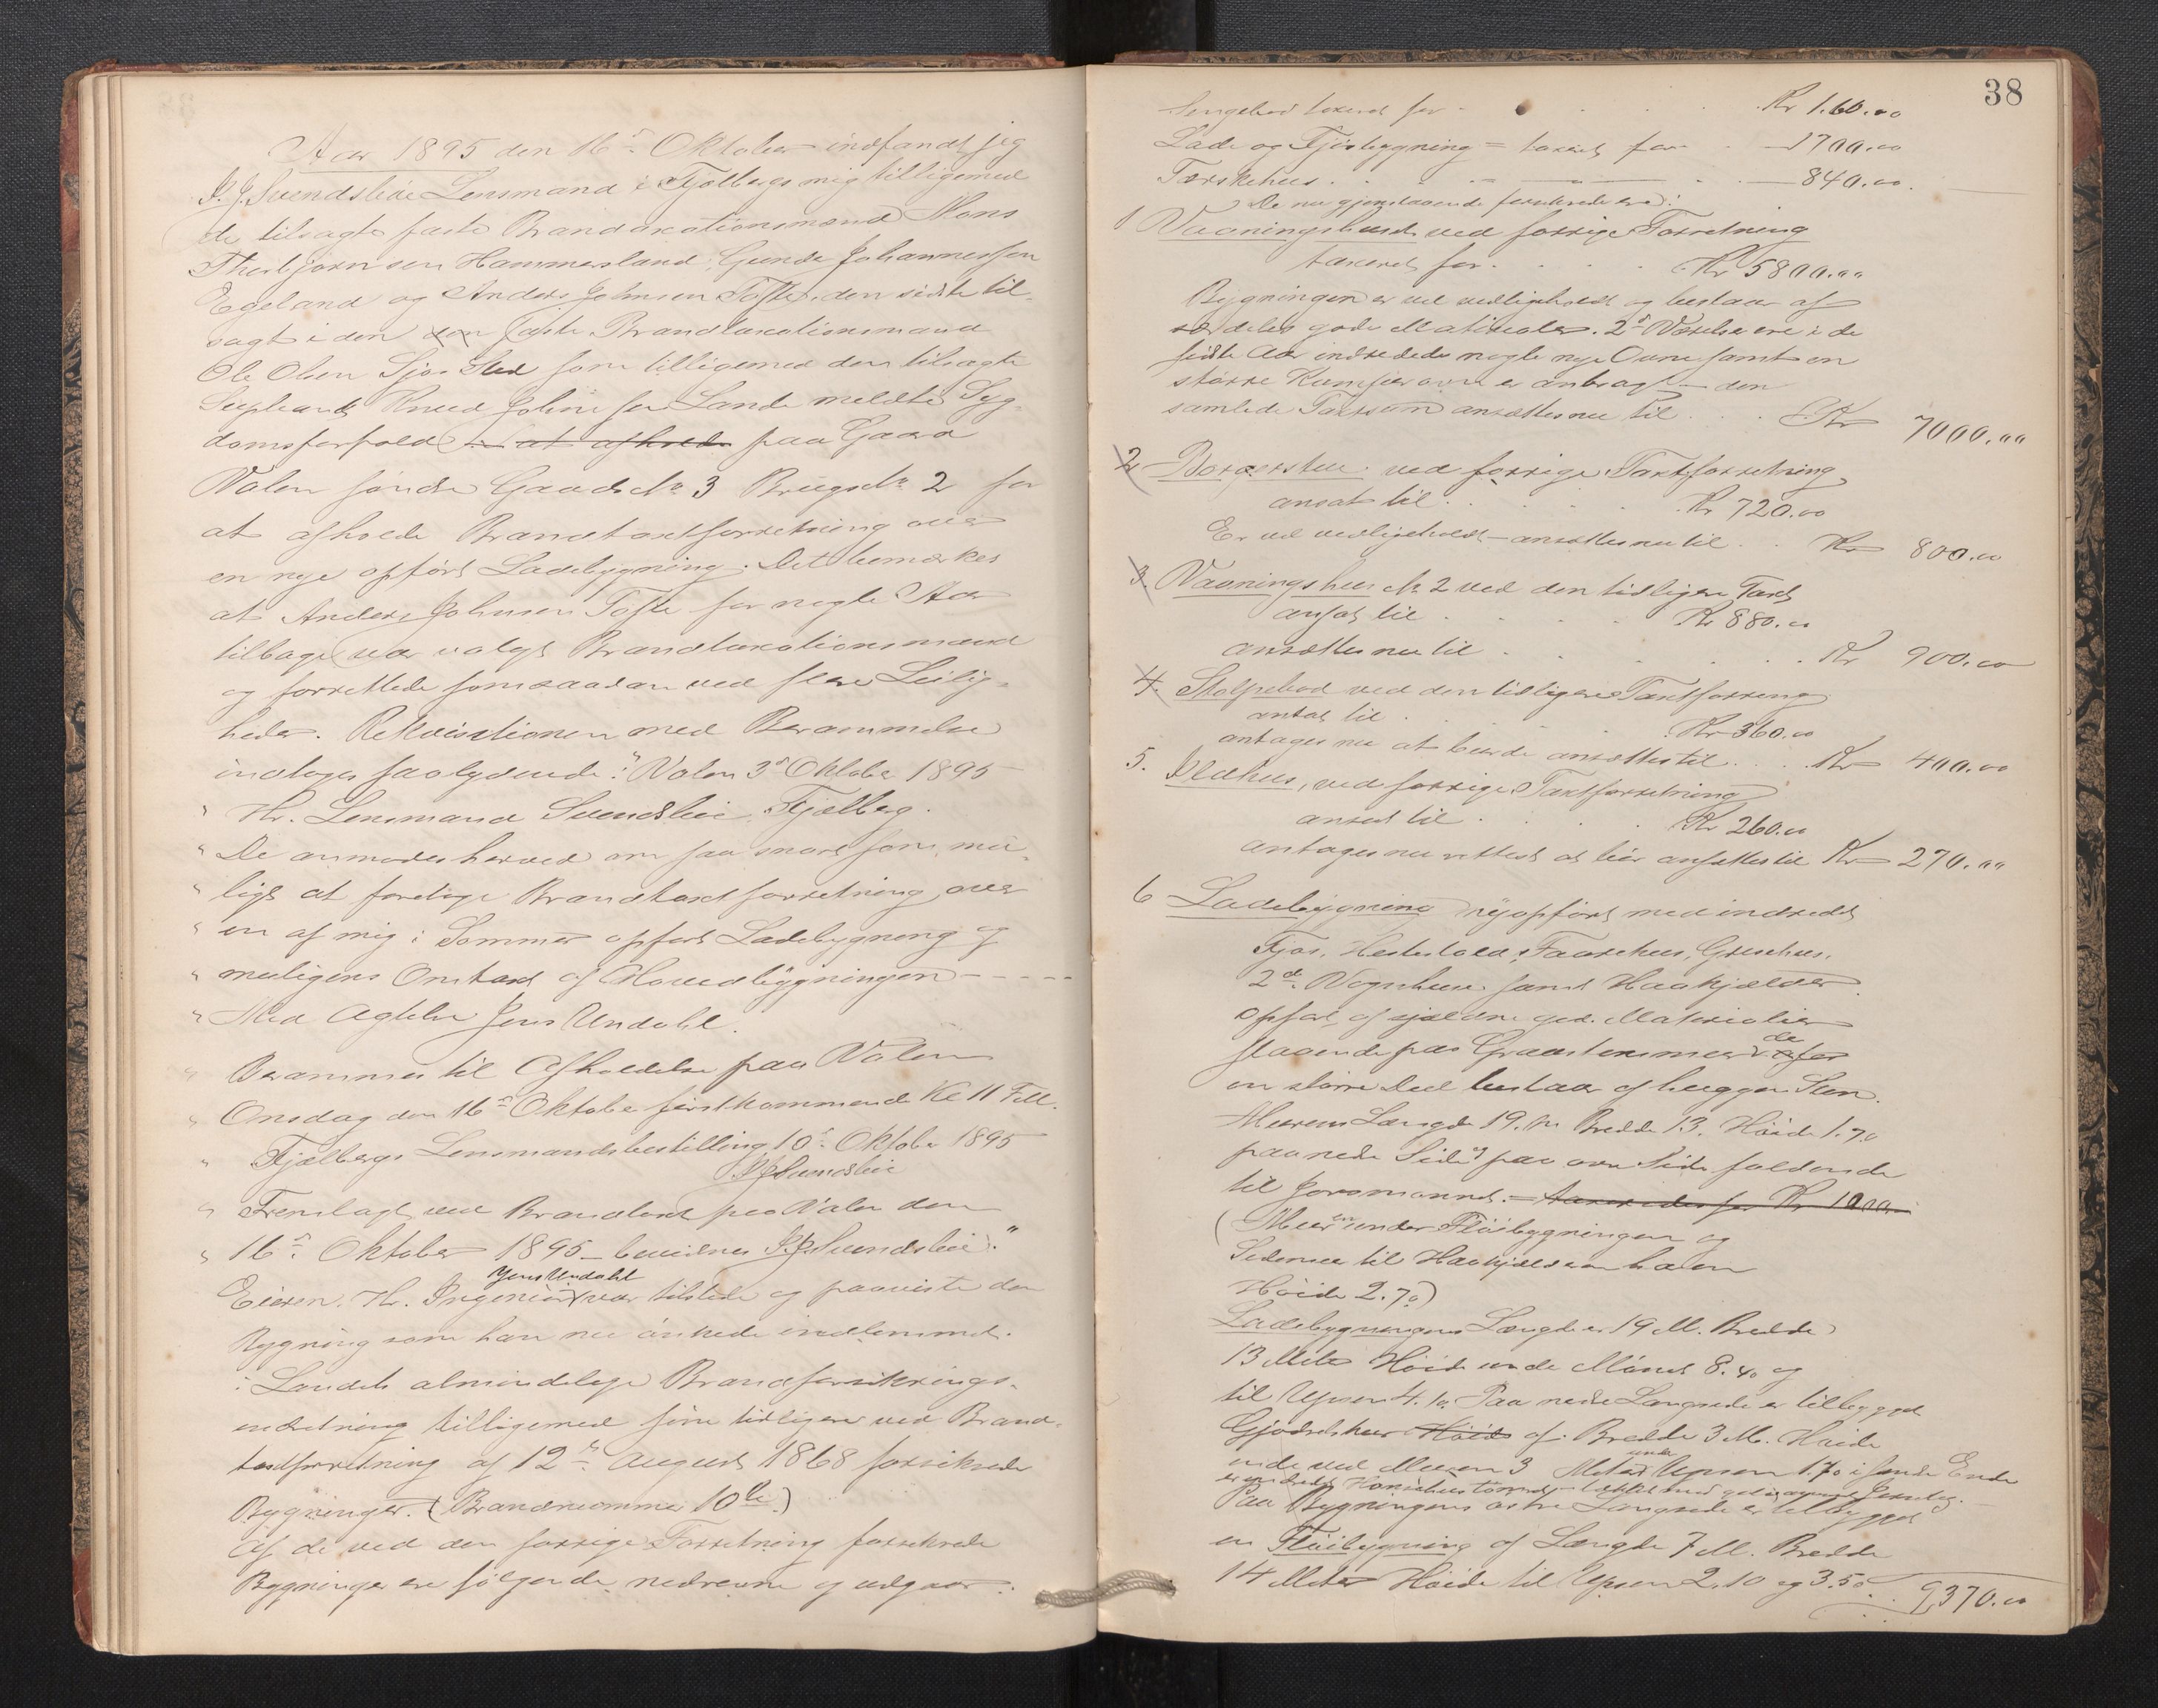 Aar 1895 den 16de Oktober indfandt jeg
P. J. Svendsbøe Lensmand i Fjælbergs mig tilligemed
de tilsagte faste Brandtaxationsmænd Mons
Thorbjørnsen Hammersland, Gunde Johannessen
Egeland og Anders Johnsen Tofte, den sidste til-
sagt i den faste Brandtaxationsmand
Ole Olsen Sjo Sted som tilligemed den tilsagte
Supleant Knud Johnsen Lande meldte Syg-
domsforfald at afholde paa Gaard
Valen søndre Gaards No 3 Brugs No 2 for
at afholde Brandtaxtforretning over
en nye opført Ladebygning. Det bemærkes
at Anders Johnsen Tofte for nogle Aar
tilbage var valgt Brandtaxationsmand
og forrettede som saadan ved flere Leilig-
heder. Rekvisitionen med Berammelse
indtages saalydende: "Valen 3de Oktober 1895
" Hr. Lensmand Svendsbøe, Fjælberg.
" De anmodes herved om saa snart som mu-
" ligt at foretage Brandtaxtforretning over
" en af mig i Sommer opført Ladebygning og
" muligens Omtaxt af Hovedbygningen - - - - -
" Med Agtelse Jens Undahl.
" Berammes til Afholdelse paa Valen
" Onsdag den 16de Oktober førstkommende Kl 11 Fm.
" Fjælbergs Lensmandsbestilling 10de Oktober 1895
P J Svendsbøe
" Fremlagt ved Brandtaxt paa Valen den
" 16de Oktober 1895 – bevidnes P. J. Svendsbøe."
Eieren, Hr. Ingeniør Jens Undahl var tilstede og paaviste den
Bygning som han nu ønskede indlemmet
i Landets almindelige Brandforsikrings-
indretning tilligemed sine tidligere ved Brand-
taxtforretning af 12te August 1868 forsikrede
Bygninger. (Brandnummer 10 b.)
Af de ved den forrige Forretning forsikrede
Bygninger ere følgende nedrevne og udgaar:
38
Sengebod taxeret for . . . . Kr 160.00
Lade og Fjøsbygning = taxeret for . – 1700.00
Tærskehus . . . — — . – 840.00.
De nu gjenstaaende forsikrede ere:
1 Vaaningshuset ved forrige Forretning
taxeret for . . . . Kr 5800.00
Bygningen er vel vedligeholdt og bestaar af
særdeles gode Materialer. 2de Værelser ere i de
sidste Aar indredede nogle nye Ovne samt en
større Kamin er anbragt – den
samlede Taxtsum ansættes nu til . . . Kr 7000.00
2 Borgerstue ved forrige Taxtforretning
ansat til . . . . Kr 720.00
Er vel vedligeholdt – ansættes nu til . . Kr 800.00
3. Vaaningshus No 2 ved den tidligere Taxt
ansat til . . . . Kr 880.00
ansættes nu til . . . . . Kr 900.00
4. Stolpebod ved den tidligere Taxtforretning
antat til . . . . Kr 360.00
antages nu at burde ansættes til . . . Kr 400.00
5. Ildhus, ved forrige Taxtforretning
ansat til . . . . Kr 260.00
antages nu rettest at bør ansættes til Kr 270.00
6 Ladebygning nyopført med indredet
Fjøs, Hestestald, Faarehus, Grisehus,
2de Vognhuse samt Haakjælder
opført af sjeldne gode Materialier
staaende paa Graastensmur de
en større Deel bestaar af huggen Sten.
Murens Længde 19. M Bredde 13. Høide 1.70
paa nedre Side paa øvre Side faldende
til Jorsmonnet. – taxeredes for Kr 1000 –
(Muren under Fløibygningen og
Sidemur til Haakjælderen har en
Høide 2.70)
Ladebygningens Længde er 19 M. Bredde
13 Meter Høide under Mønet 8.40 og
til Upsen 4.10. Paa nedre Langside er tilbygget
Gjødselhus Høide af Bredde 3 M. Høide
inde ved Muren 3 Meter under Upsen 1.70 i søndre Ende
Paa Bygningens østre Langside er tilbygget
en Fløibygning af Længde 7 M. Bredde
14 Meter Høide til Upsen 2.10 og 3.50
9,370.00